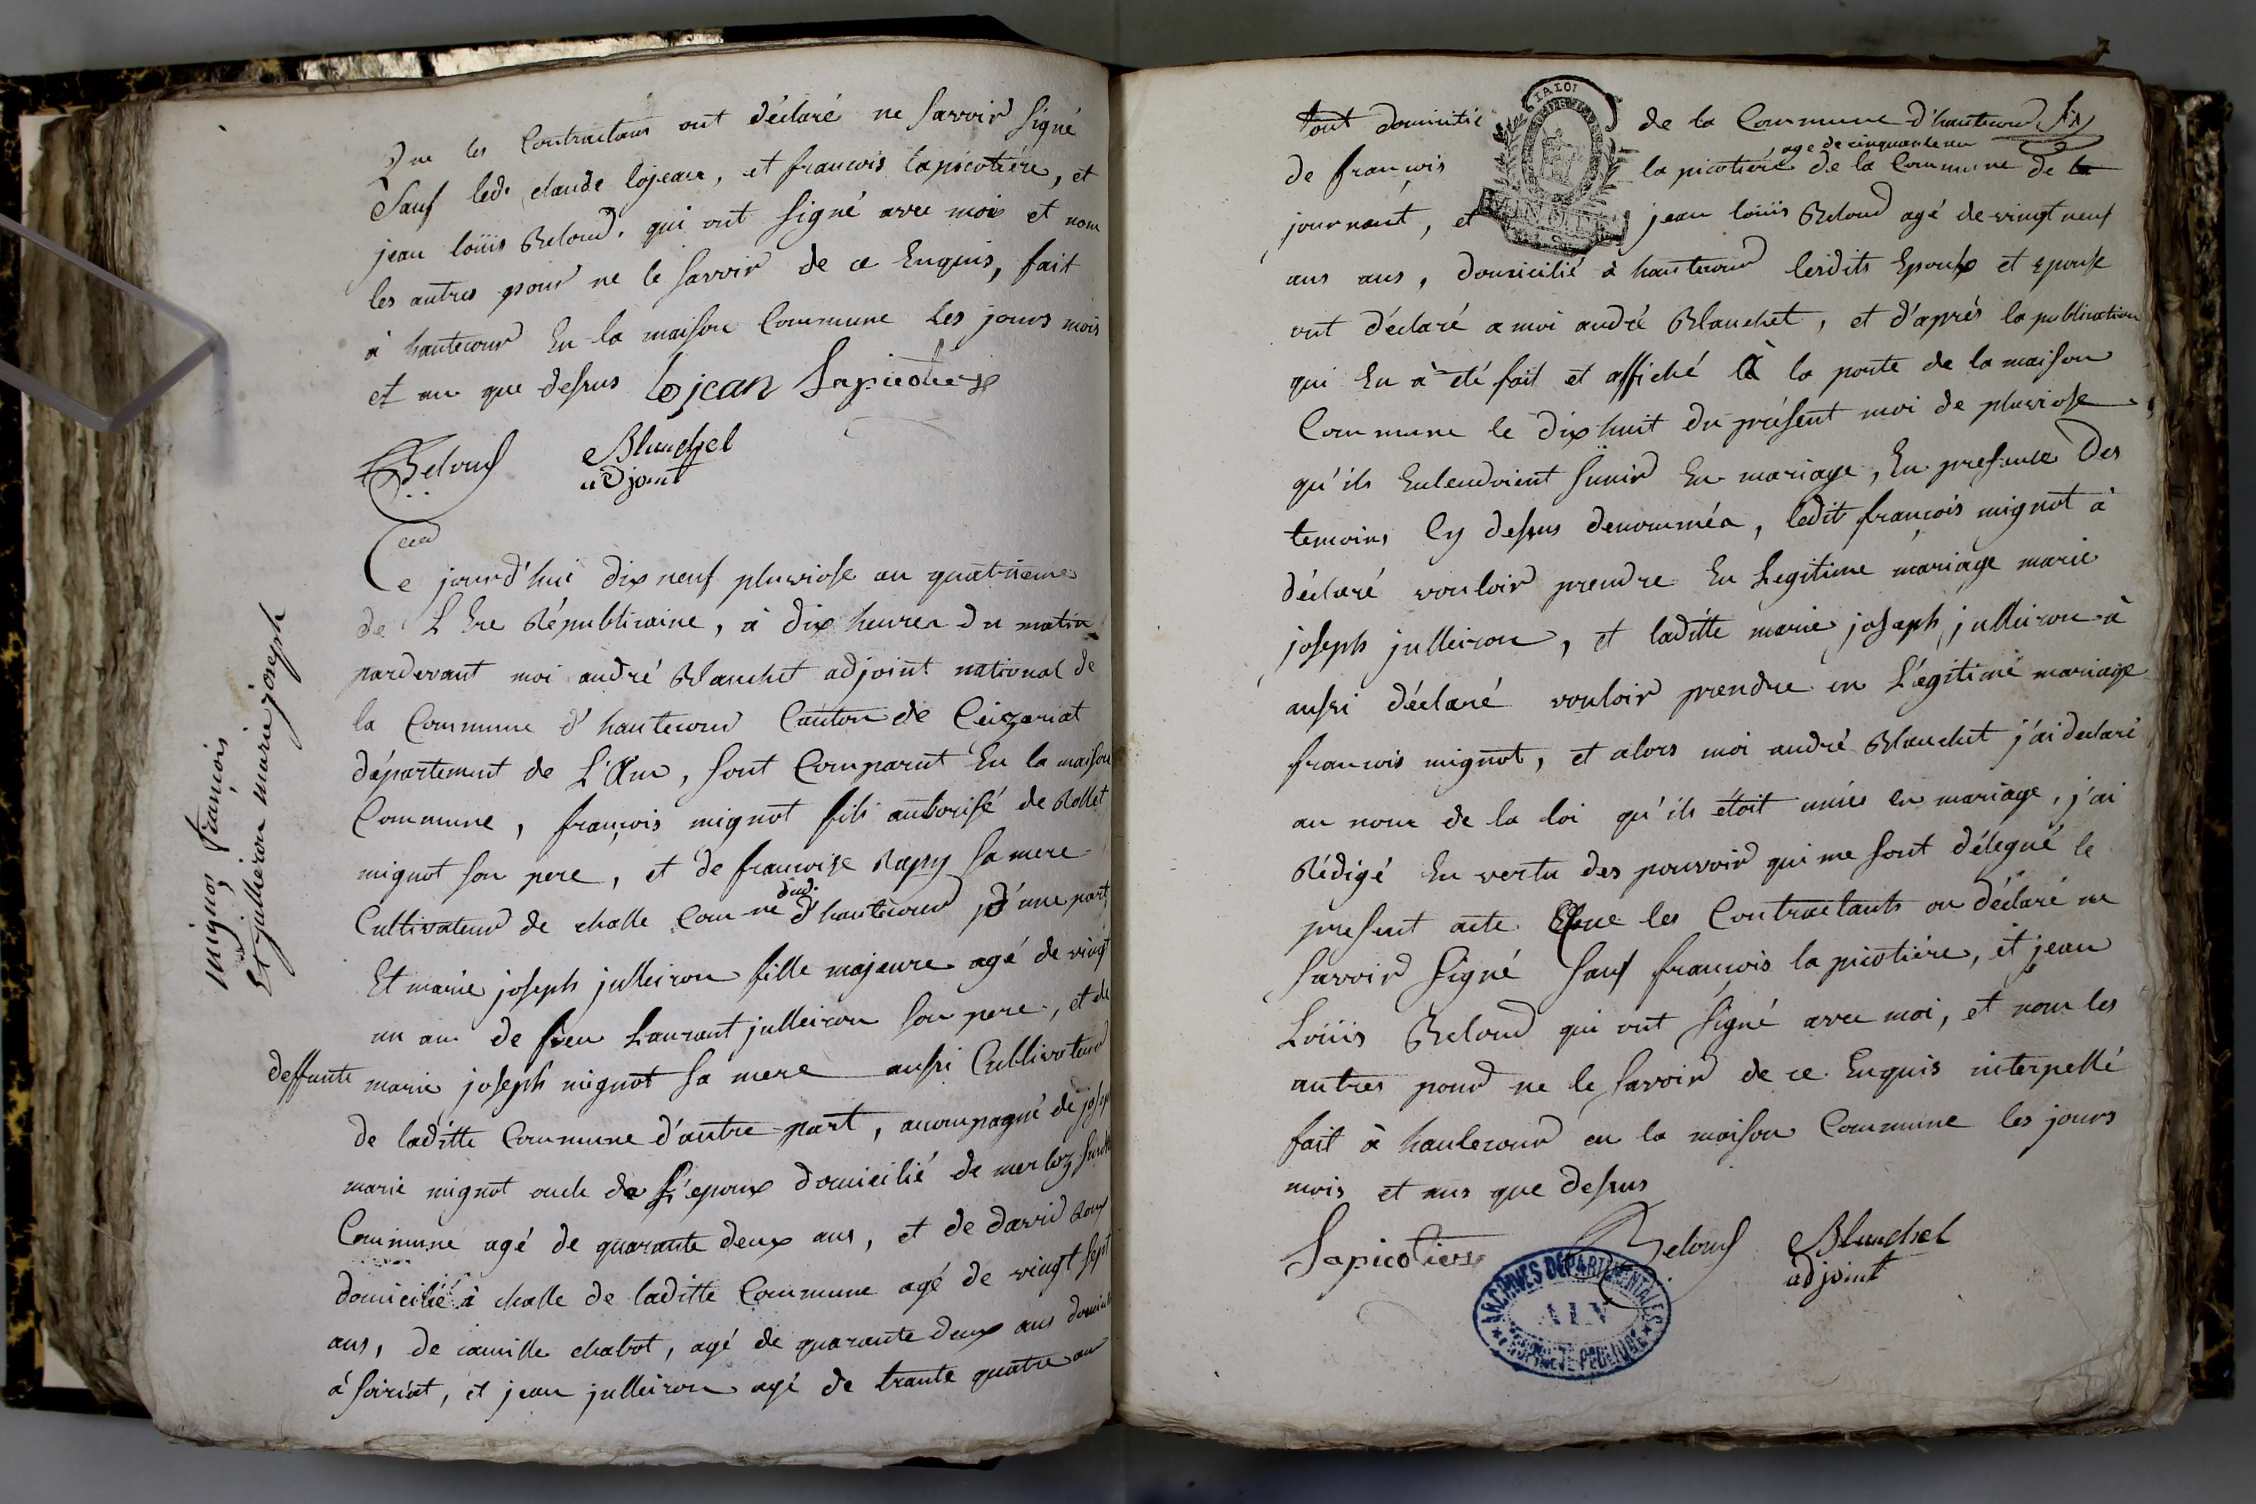 Que les Contractans ont déclaré ne savoir signé
Sauf led. claude lojean, et francois lapicotiére, et
jean loüis Reloud. qui ont signé avec moi et non
les autres pour ne le savoir de ce Enquis, fait
à hautecour En la maison Commune les jours mois
et an que dessus lojean Lapicotiere
Reloud Blanchet
adjoint
Ce jourd'hui dix neuf pluviose an quatrieme
de L Ere Républicaine, à dix heures du matin
pardevant moi andré Blanchet adjoint national de
la Commune d'hautecour Canton de Ceizeriat
département de L'Ain, sont Comparut En la maison
Commune, françois mignot fils authorisé de Rollet
mignot son pere, et de francoise Rapy sa mere
Cultivateur de challe Comne dud. d'hautecour d'une part,
Et marie joseph julleiron fille majeure agé de vingt
un an de feu Laurant julleiron son pere, et de
deffunte marie joseph mignot sa mere aussi Cultivateur
de laditte Commune d'autre part, acompagné de joseph
marie mignot oncle de L'epoux domicilié de merloz suditte
Commune agé de quarante deux ans, et de david Roux
domicilié à challe de laditte Commune agé de vingt sept
ans, de camille chabot, agé de quarante deux ans domicilié
à soiriat, et jean julleiron agé de trante quatre an
mignot françois
Et jullieron marie joseph
tout domicilié de la Commune d'hautecour
de françois lapicotiere age de cinquante un de la Commune de la
journant, et jean loüis Reloud agé de vingt neuf
ans ans, domicilié à hautecour lesdits Epoux et epouse
ont déclaré a moi andré Blanchet, et d'aprés la publication
qui En à été fait et affiché à la porte de la maison
Commune le dix huit du présent moi de pluviose
qu'ils Entendoient sunir En mariage, En presence des
temoins Cy dessus denommés, ledit françois mignot à
déclaré vouloir prendre En Legitime mariage marie
joseph julleiron, et laditte marie joseph julleiron à
aussi déclaré vouloir prendre en Légitime mariage
francois mignot, et alors moi andré Blanchet j'ai declaré
au nom de la loi qu'ils étoit unies en mariage, j'ai
Rédigé En vertu des pouvoir qui me sont délegué le
present acte Que les Contractants on déclaré ne
savoir signé sauf francois lapicotiére, et jean
Loüis Reloud qui ont signé avec moi, et non les
autres pour ne le savoir de ce Enquis interpellé
fait à hautecour en la maison Commune les jours
mois et ans que dessus
Lapicotiere Reloud Blanchet
adjoint
ARCHIVES DEPARTEMENTALES
AIN
PROPRIETE PUBLIQUE